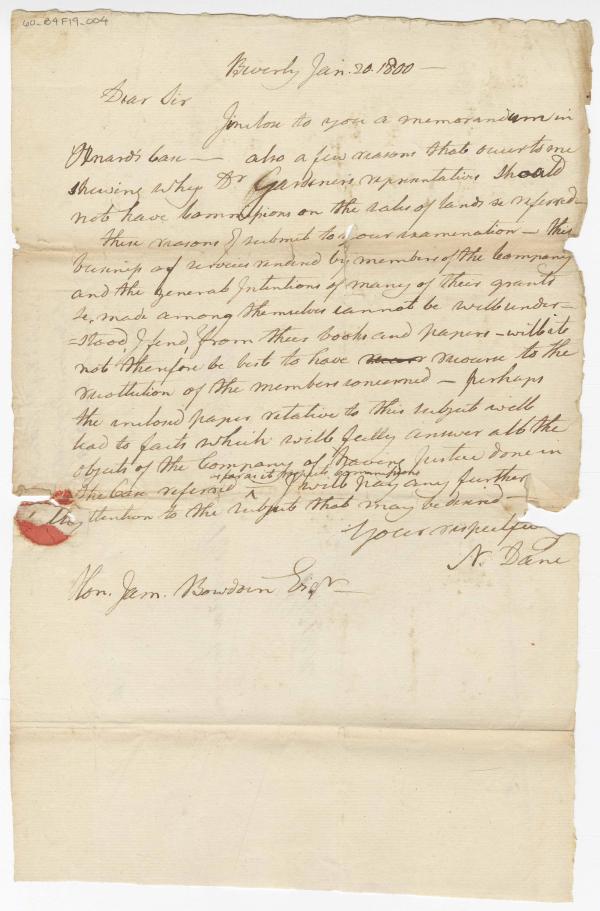 60_B4F19_004
Beverly Jan. 20. 1800 —
Dear Sir
I inclose to you a memorandum in
case — also a few reasons that occur to me
shewing why Dr Gardener's representatives should
not have Commissions on the sales of lands se referred —
these reasons I submit to your examination — the
business of services rendered by members of the Company
and the general Intentions of many of their grants
&c. made among themselves cannot be well under=
=stood, I find, from their books and papers — will it
not therefore be best to have recourse to the
recollection of the members concerned — perhaps
the inclosed paper relative to this subject will
lead to facts which will fully answer all the
objects of the Company of having Justice done in
so far as it respects commissions
the case referred ^ I will pay any further
attention to the subject that may be desired —
Your respectfully
N. Dane
Hon. Jam. Bowdoin Esqr —